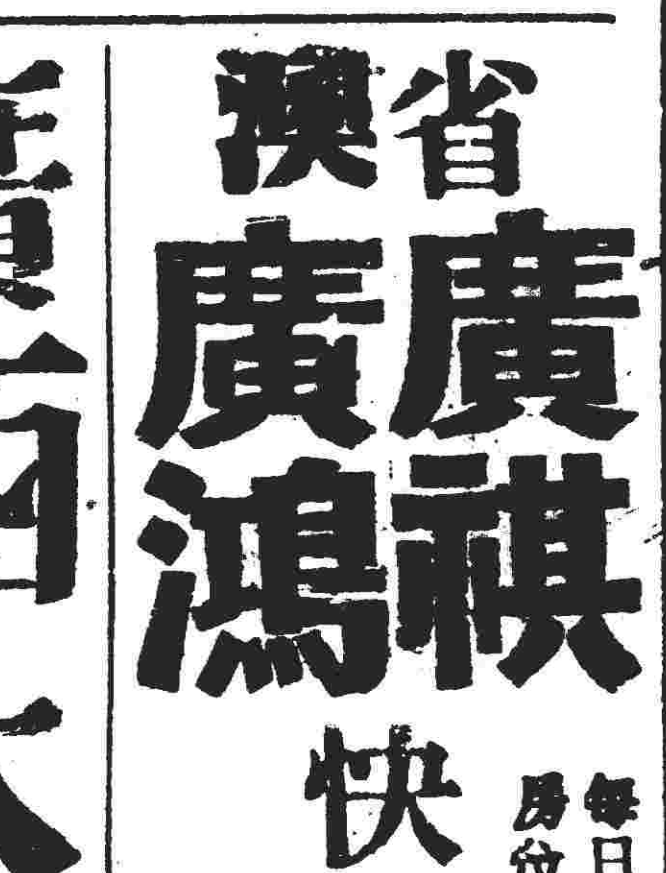 省澳
廣祺
廣鴻
快
每日
房位